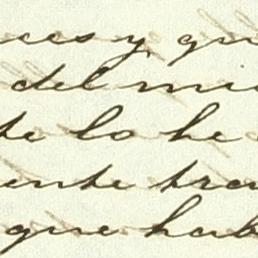 ces y qu
del mi
te lo he
ente tra
que hab